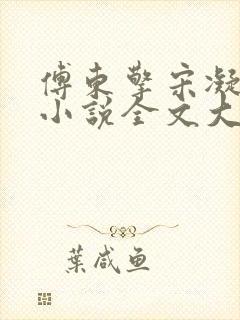 傅東擎宋凝
小說全文大
葉咸鱼